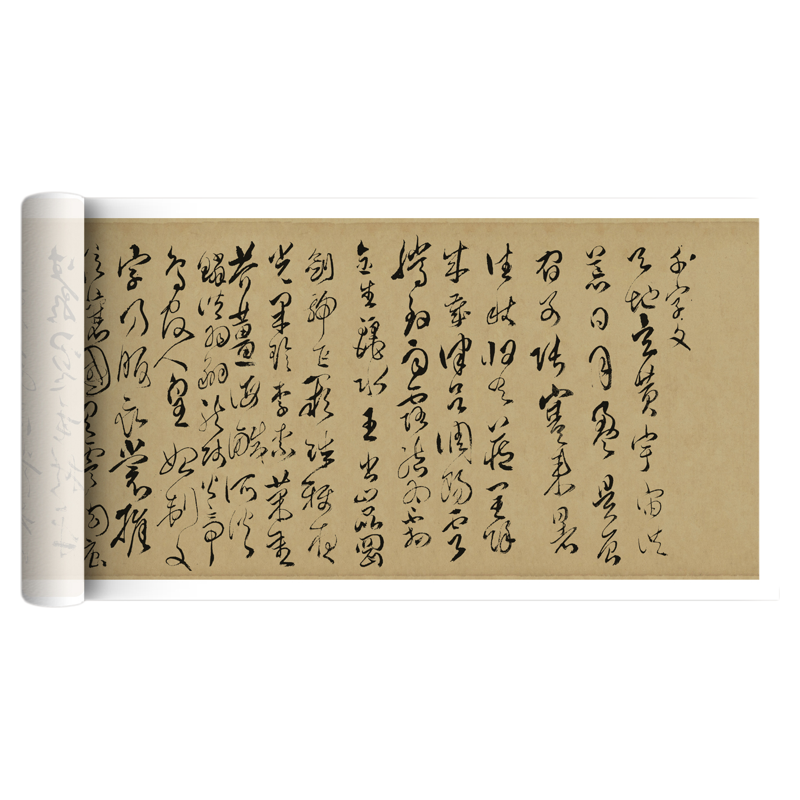 千字文
天地玄黄宇宙洪
荒日月盈昃辰
宿列張寒來暑
往秋收冬藏閏餘
成歲律吕調陽雲
騰致雨露結為霜
金生麗水玉出崑岡
劍號巨闕珠稱夜
光果珍李柰菜重
芥薑海鹹河淡
鱗潛羽翔龍師火帝
鳥官人皇始制文
字乃服衣裳推
位讓國有虞陶唐